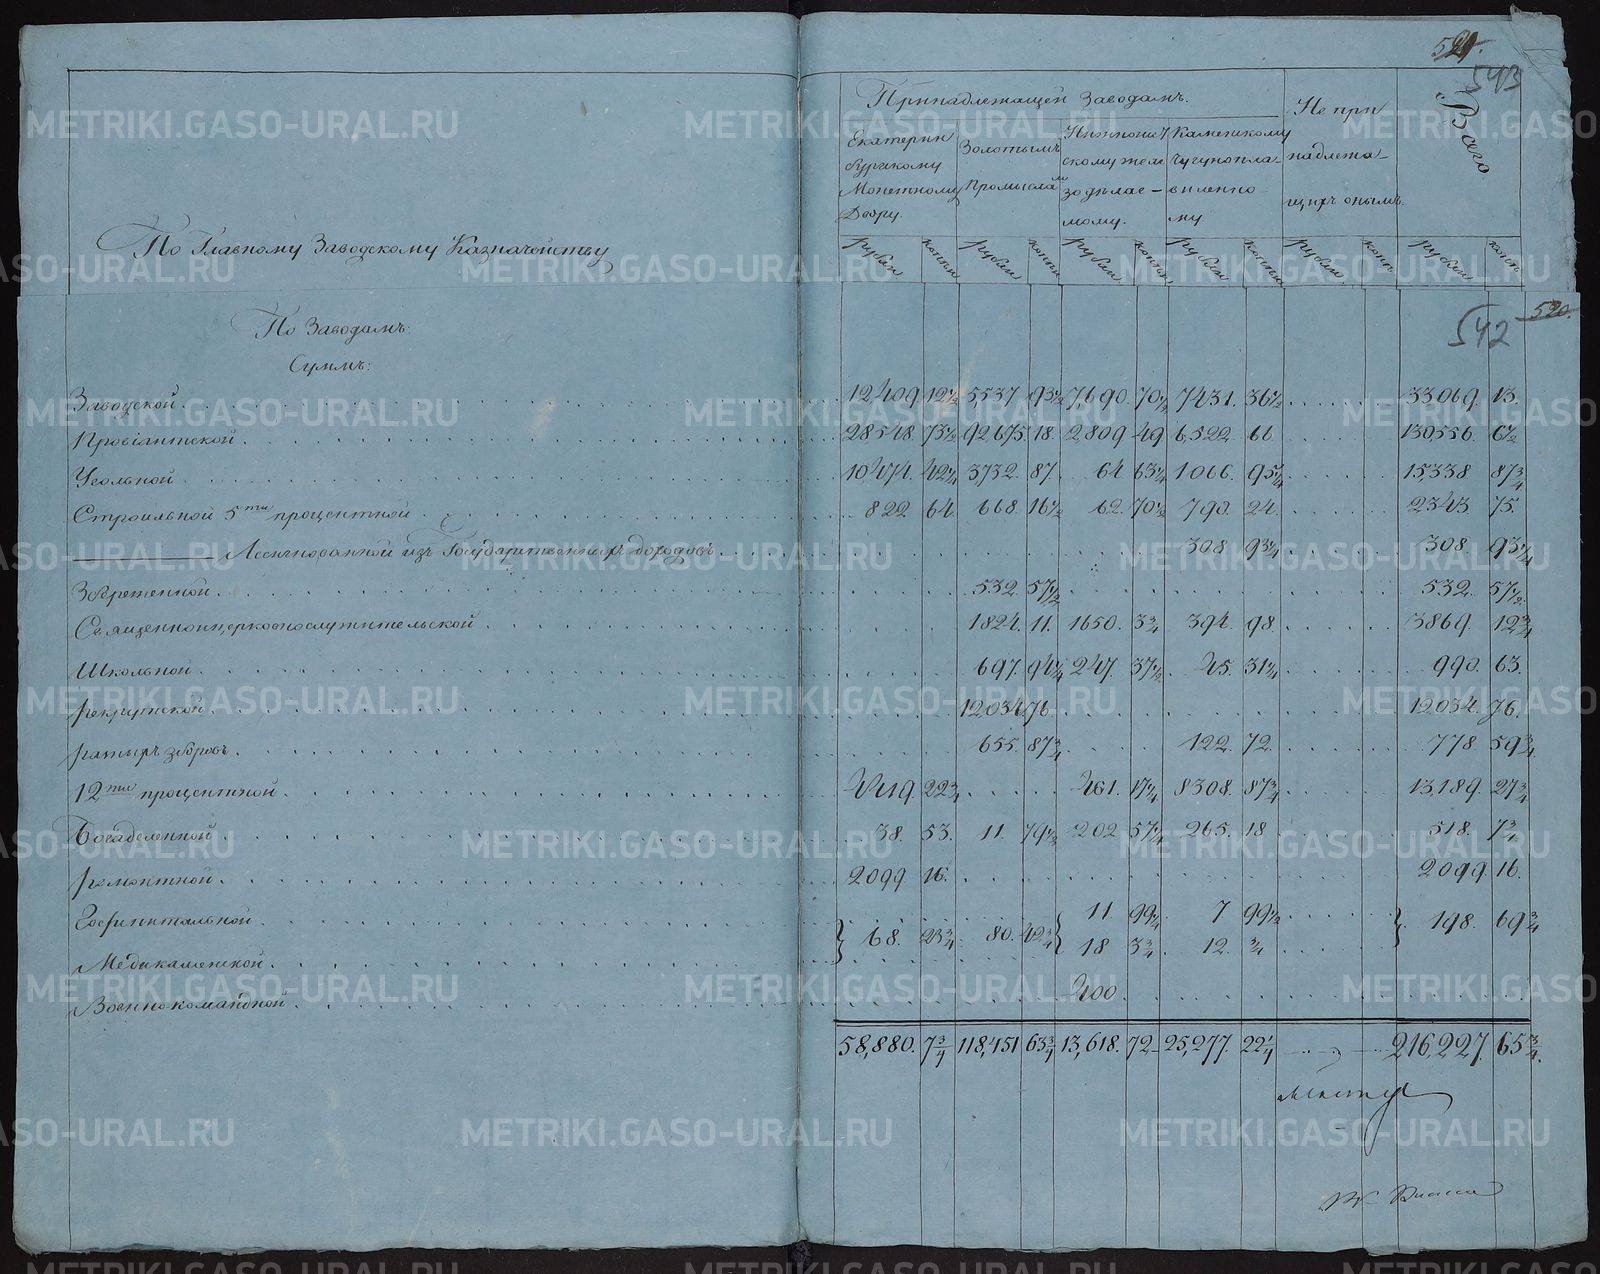 521.
543
Принадлежащей Заводамъ.
Не при
надлежа-
щихъ онымъ.
Всего
Екатерин
бургскому
Монетному
Двору.
Золотымъ
Промысламъ
Нижнеис
скому желе
зодѣлае-
мому.
Каменскому
чугунопла-
виленно
му
По Главному Заводскому Казначейству
рубли копѣй рубли копѣй рубли копѣй рубли копѣй рубли копѣ рубли копѣ
520.
542
По Заводамъ
Суммъ:
Заводской 12409 12½ 5537 93½ 7690. 70½ 7431. 36½ 33069. 13.
Провіантской 28548 73½ 92675 18. 2809 49 6,522. 66 130,556. 6½
Угольной 10474. 42¼ 3732. 87. 64 63¼ 1066. 95¼ 15,338. 87¾
Строильной 5ти процентной 822 64 668. 16½ 62. 70½ 790. 24. 2343 75.
Ассигнованной изъ Государственныхъ доходовъ 308 93¼ 308. 93¼
Збереженной 532. 57½ 532. 57½
Священноцерковнослужительской 1824. 11. 1650. 3¾ 394. 98. 3869. 12¾
Школьной 697. 94¼ 247. 37½ 45. 31¼ 990. 63.
рекрутской 12,034 76. 12034. 76.
разныхъ зборовъ 655. 87¾ 122. 72. 778 59¾
12ти процентной 4419 22¾ 461. 17¼ 8308. 87¾ 13,189. 27¾
Богаделенной 38. 53. 11. 79½ 202 57¼ 265. 18 518. 7¾
ремонтной 2099 16. 2099. 16.
Гофшпитальной 68. 23¾ 80. 42¾ 11 99¼ 7 99½ 198. 69¾
Медикаменской 18 3¾ 12. ¾
Военнокомандной 400
58,880. 7¾ 118,451 63¾ 13,618. 72 25,277. 22¼ 216,227. 65¾.